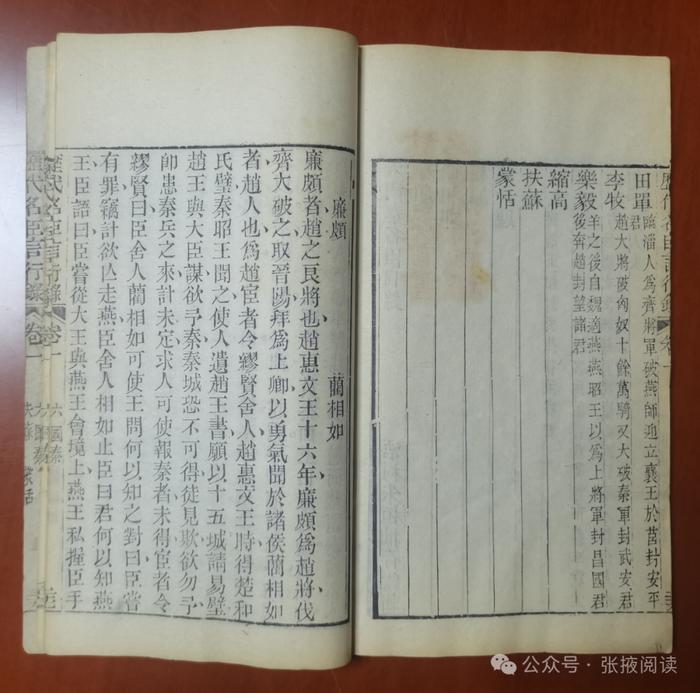 歷代名臣言行錄 卷一
田單 臨淄人為齊將軍破燕師迎立襄王於莒封安平君
李牧 趙大將破匈奴十餘萬騎又大破秦軍封武安君
樂毅 羊之後自魏適燕燕昭王以為上將軍封昌國君後奔趙封望諸君
縮高
扶蘇
蒙恬
廉頗 藺相如
廉頗者趙之良將也趙惠文王十六年廉頗為趙將伐
齊大破之取晉陽拜為上卿以勇氣聞於諸侯藺相如
者趙人也為趙宦者令繆賢舍人趙惠文王時得楚和
氏璧秦昭王聞之使人遺趙王書願以十五城請易璧
趙王與大臣謀欲予秦秦城恐不可得徒見欺欲勿予
即患秦兵之來計未定求人可使報秦者未得宦者令
繆賢曰臣舍人藺相如可使王問何以知之對曰臣嘗
有罪竊計欲亾走燕臣舍人相如止臣曰君何以知燕
王臣語曰臣嘗從大王與燕王會境上燕王私握臣手
歷代名臣言行錄 卷一 六國秦
歷代名臣言行錄 卷一
扶蘇 蒙恬
公众号·张掖阅读